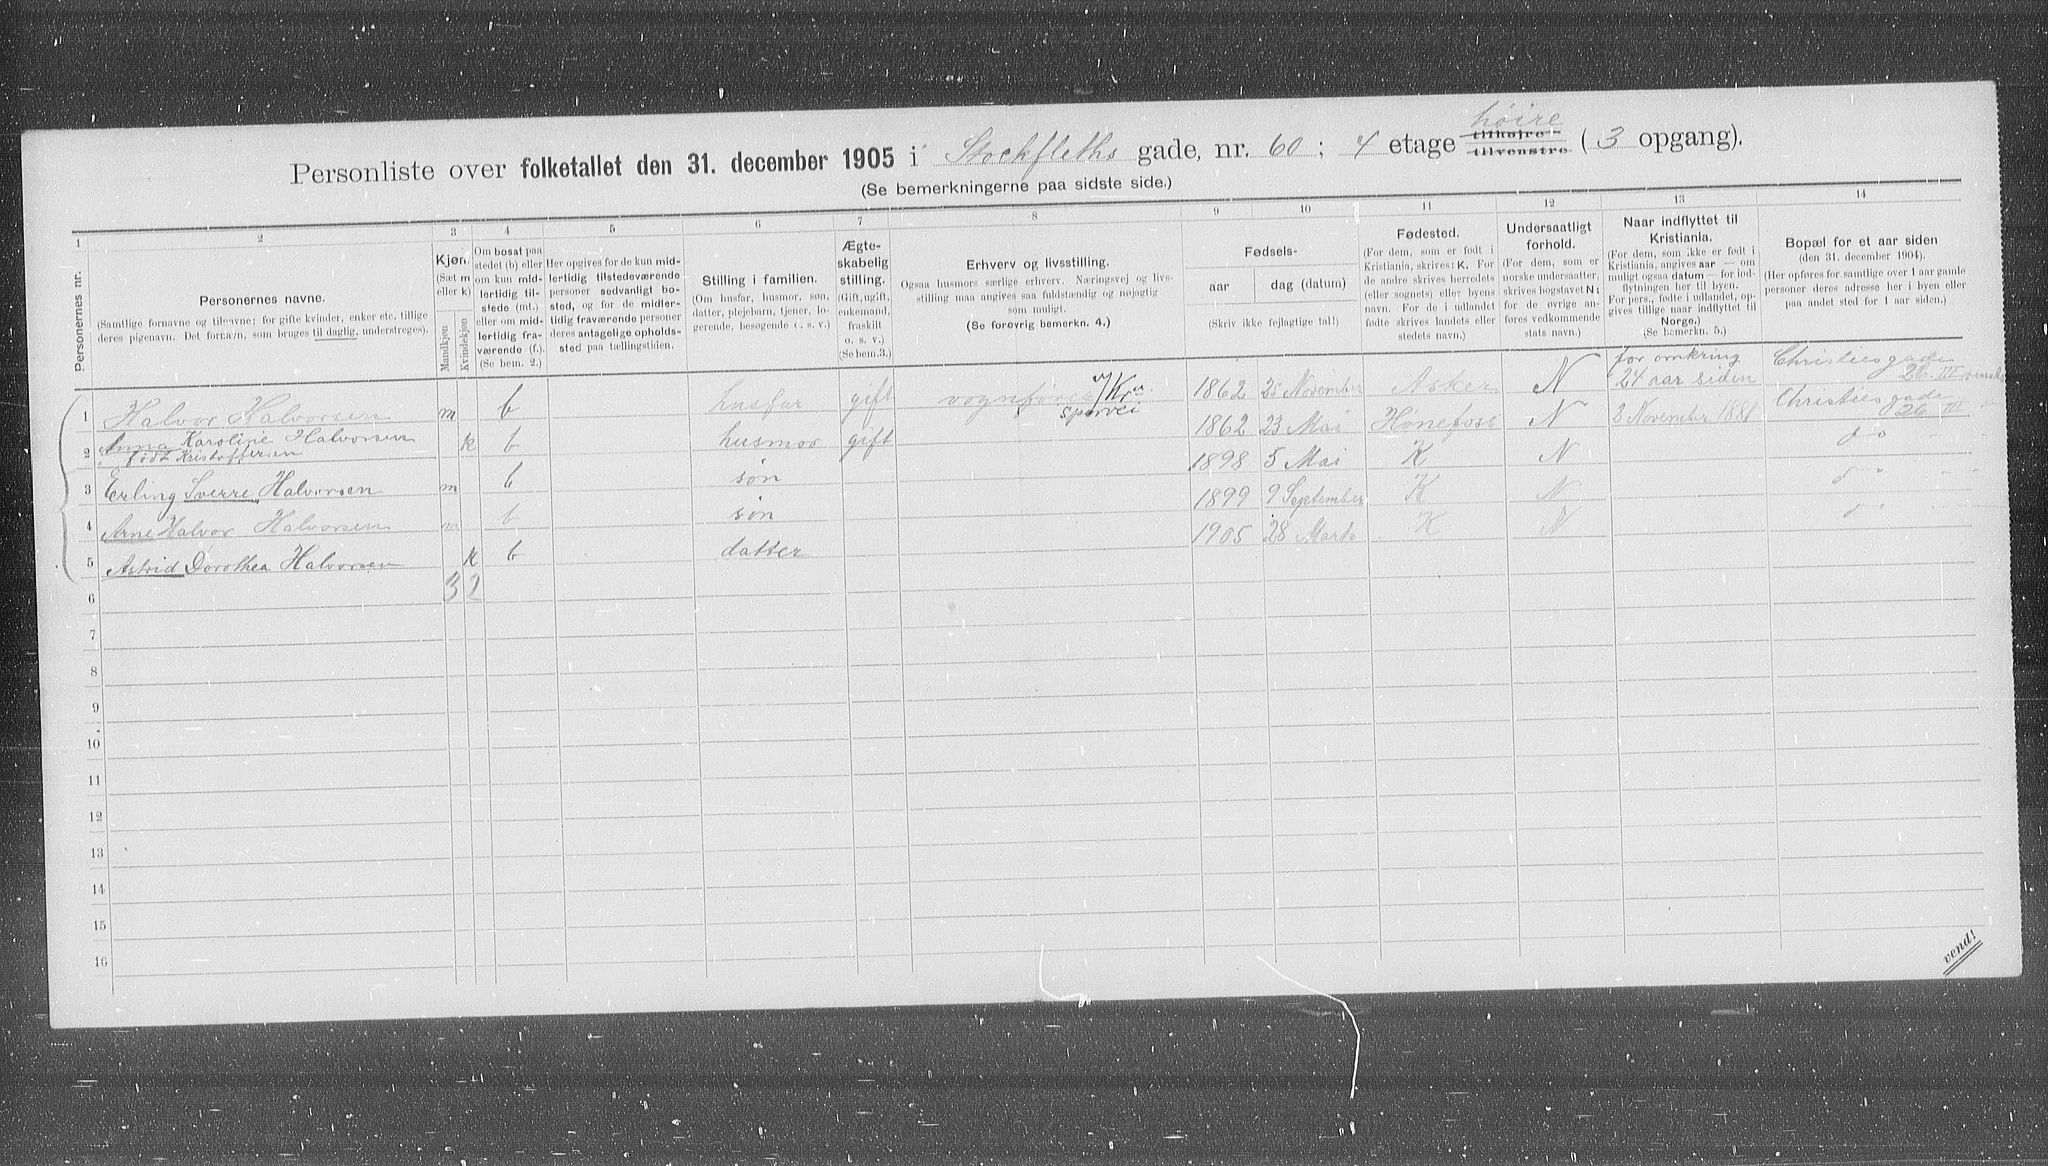 Personliste over folketallet den 31. december 1905 i Stockfleths gade, nr. 60; 4 etage høire tilhøire tilvenstre (3 opgang).
(Se bemerkningerne paa sidste side.)
1 2 3 4 5 6 7 8 9 10 11 12 13 14
Personernes nr.
Personernes navne.
(Samtlige fornavne og tilnavne; for gifte kvinder, enker etc. tillige
deres pigenavn. Det fornavn, som bruges til daglig, understreges).
Kjøn.
(Sæt m
eller k)
Mandkjøn
Kvindekjøn
Om bosat paa
stedet (b) eller
om kun mid-
lertidig til-
stede (mt.)
eller om mid-
lertidig fra-
værende (f.).
(Se bem. 2.)
Her opgives for de kun mid-
lertidig tilstedeværende
personer sedvanlig bo-
sted, og for de midler-
tidig fraværende personer
deres antagelige opholds-
sted paa tællingstiden.
Stilling i familien.
(Om husfar, husmor, søn,
datter, plejebarn, tjener, lo-
gerende, besøgende o. s. v.)
Ægte-
skabelig
stilling.
(Gift, ugift,
enkemand,
fraskilt
o. s. v.)
(Se bem. 3.)
Erhverv og livsstilling.
Ogsaa husmors særlige erhverv. Næringsvej og livs-
stilling maa angives saa fuldstændig og nøjagtig
som muligt.
(Se forøvrig bemerkn. 4.)
Fødsels-
aar dag (datum)
(Skriv ikke fejlagtige tal!)
Fødested.
(For dem, som er født i
Kristiania, skrives: K. For
de andre skrives herredets
(eller sognets) eller byens
navn. For de i udlandet
fødte skrives landets eller
stedets navn.)
Undersaatligt
forhold.
(For dem, som er
norske undersaatter,
skrives bogstavet N;
for de øvrige an-
føres vedkommende
stats navn.)
Naar indflyttet til
Kristiania.
(For dem, som ikke er født i
Kristiania, angives aar — om
muligt ogsaa datum — for ind-
flytningen her til byen.
For pers., fødte i udlandet, op-
gives tillige naar indflyttet til
Norge.)
(Se bemerkn. 5.)
Bopæl for et aar siden
(den 31. december 1904).
(Her opføres for samtlige over 1 aar gamle
personer deres adresse her i byen eller
paa andet sted for 1 aar siden.)
1 Halvor Halvorsen m b husfar gift vognfører v/Kra. sporvei 1862 25 November Asker N for omkring 24 aar siden Christiesgade 26 III
2 Anna Karoline Halvorsen født Kristoffersen k b husmor gift 1862 23 Mai Hønefoss N 3 November 1881 Christiesgade 26 III
3 Erling Sverre Halvorsen m b søn 1898 5 Mai K N do
4 Arne Halvor Halvorsen m b søn 1899 9 September K N do
5 Astrid Dorothea Halvorsen k b datter 1905 28 Marts K N do
6 3 2
7
8
9
10
11
12
13
14
15
16
vend!